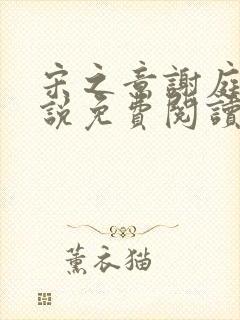 宋之章謝庭
說免費閱讀
薰衣猫